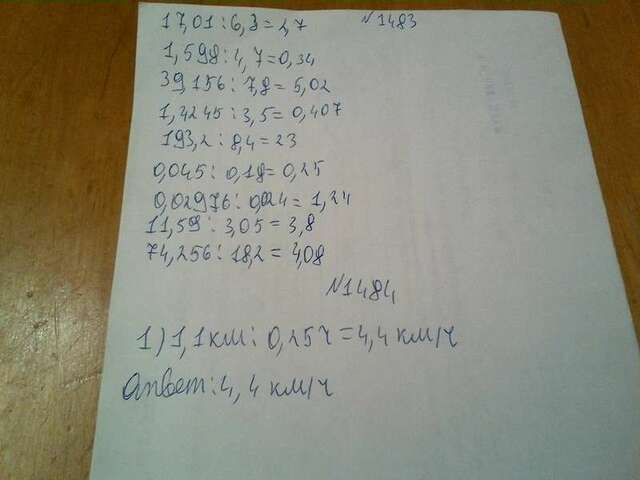 17,01 : 6,3 = 2,7 №1483
1,598 : 4,7 = 0,34
39156 : 7,8 = 5,02
1,4245 : 3,5 = 0,407
193,2 : 8,4 = 23
0,045 : 0,18 = 0,25
0,02976 : 0,024 = 1,24
11,59 : 3,05 = 3,8
74,256 : 18,2 = 4,08
№1484
1) 1,1 км : 0,25 ч = 4,4 км/ч
Ответ: 4,4 км/ч